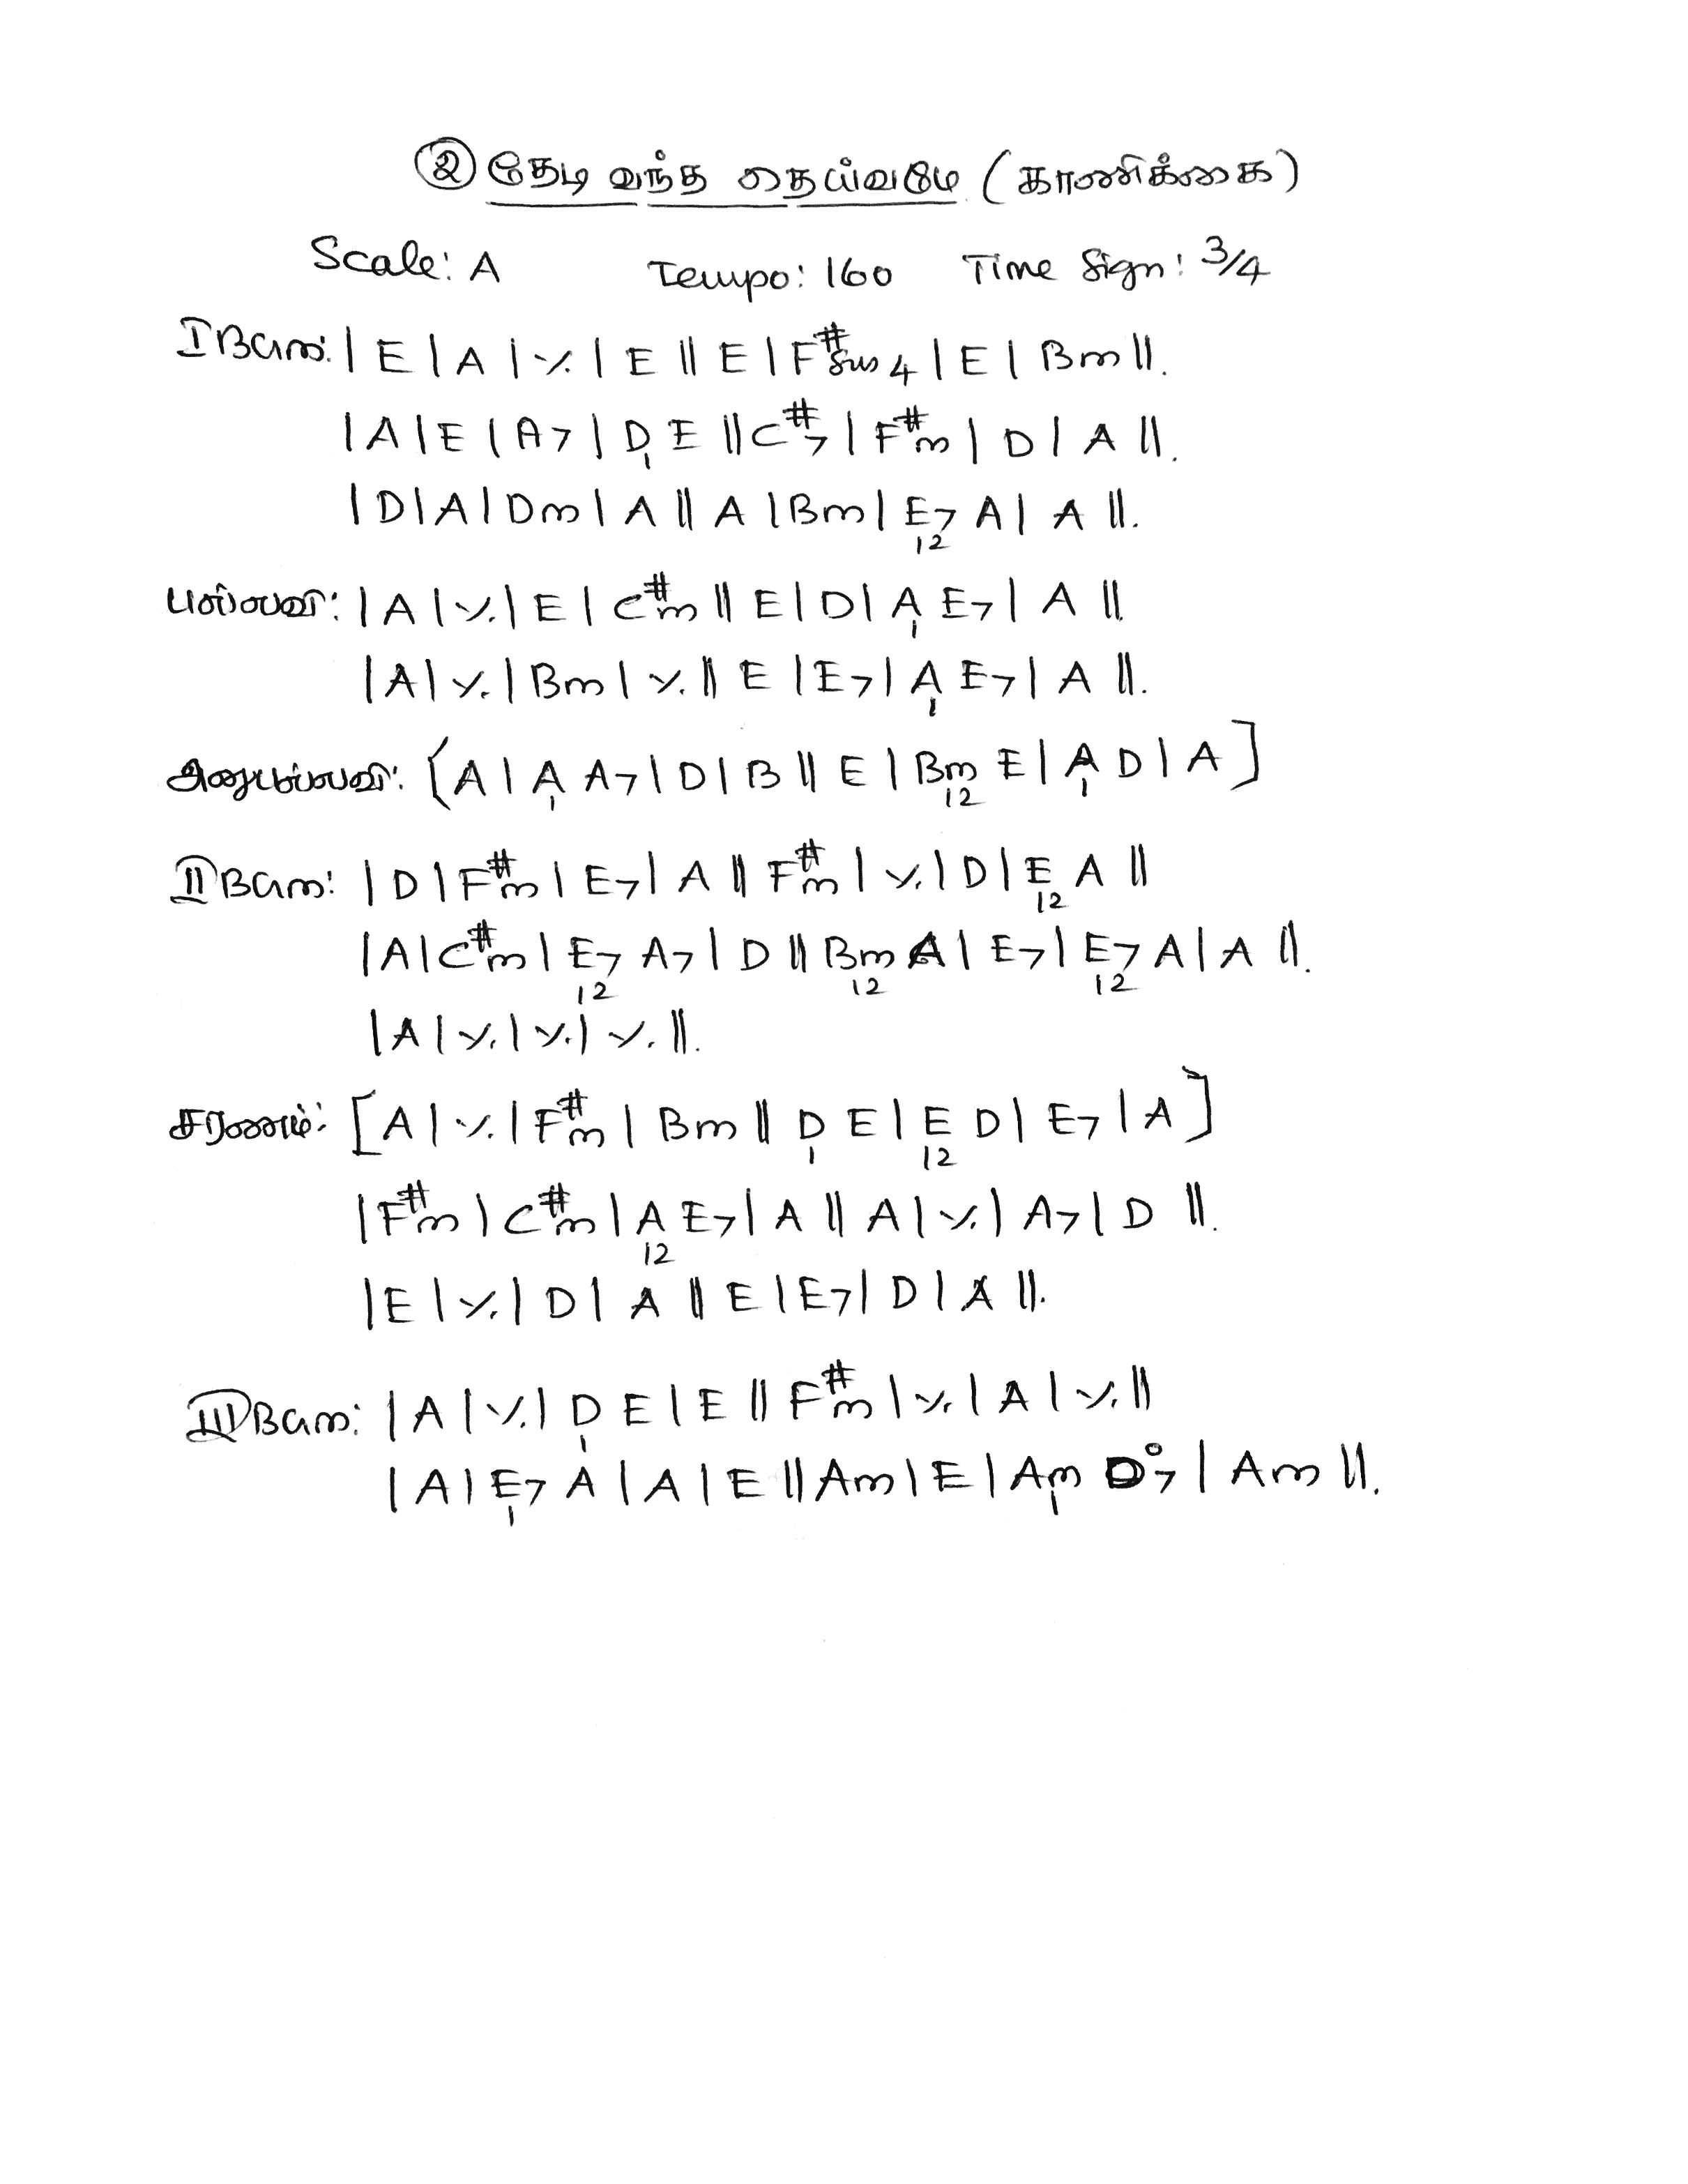 ② தேடி வந்த தெய்வமே (காணிக்கை)
Scale: A Tempo: 160 Time Sign: 3/4
I BGM: | E | A | ٪ | E || E | F#sus4 | E | Bm ||.
| A | E | A7 | D E || C#7 | F#m | D | A ||.
1
| D | A | Dm | A || A | Bm | E7 A | A ||.
12
பல்லவி: | A | ٪ | E | C#m || E | D | A E7 | A ||
1
| A | ٪ | Bm | ٪ || E | E7 | A E7 | A ||.
1
அனுபல்லவி: [A | A A7 | D | B || E | Bm E | A D | A]
1 12 1
II BGM: | D | F#m | E7 | A || F#m | ٪ | D | E A ||
12
| A | C#m | E7 A7 | D || Bm A | E7 | E7 A | A ||.
12 12 12
| A | ٪ | ٪ | ٪ ||.
சரணம்: [A | ٪ | F#m | Bm || D E | E D | E7 | A]
1 12
| F#m | C#m | A E7 | A || A | ٪ | A7 | D ||.
12
| E | ٪ | D | A || E | E7 | D | A ||.
III BGM: | A | ٪ | D E | E || F#m | ٪ | A | ٪ ||
1
| A | E7 A | A | E || Am | E | Am D°7 | Am ||.
1 1